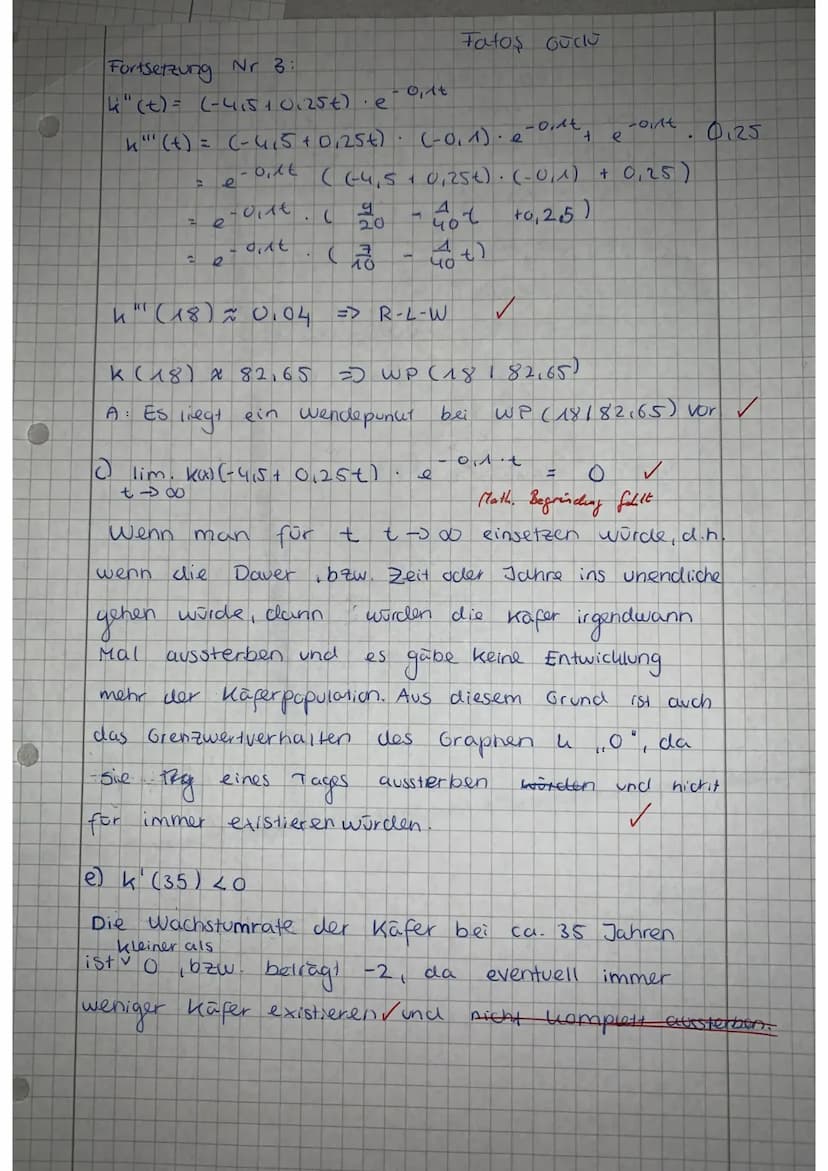 Fatoş Güclü
Fortsetzung Nr 3:
k''(t) = (-4,5+0,25t) · e^-0,1t
k'''(t) = (-4,5+0,25t) · (-0,1) · e^-0,1t + e^-0,1t · 0,25
= e^-0,1t ((-4,5+0,25t) · (-0,1) + 0,25)
= e^-0,1t · ( 9/20 - 1/40 t +0,25)
= e^-0,1t · ( 7/10 - 1/40 t)
k'''(18) ≈ 0,04 => R-L-W ✓
k(18) ≈ 82,65 => WP(18 | 82,65)
A: Es liegt ein Wendepunkt bei WP(18|82,65) vor ✓
c) lim. k(x)(-4,5+ 0,25t) · e^-0,1·t = 0 ✓
t→∞ Math. Begründung fehlt
Wenn man für t t→∞ einsetzen würde, d.h.
wenn die Dauer, bzw. Zeit oder Jahre ins unendliche
gehen würde, dann würden die Käfer irgendwann
Mal aussterben und es gäbe keine Entwicklung
mehr der Käferpopulation. Aus diesem Grund ist auch
das Grenzwertverhalten des Graphen k „0", da
sie eines Tages aussterben würden und nicht
für immer existieren würden. ✓
e) k'(35) <0
Die Wachstumrate der Käfer bei ca. 35 Jahren
kleiner als
ist 0, bzw. beträgt -2, da eventuell immer
weniger Käfer existieren ✓ und nicht komplett aussterben.